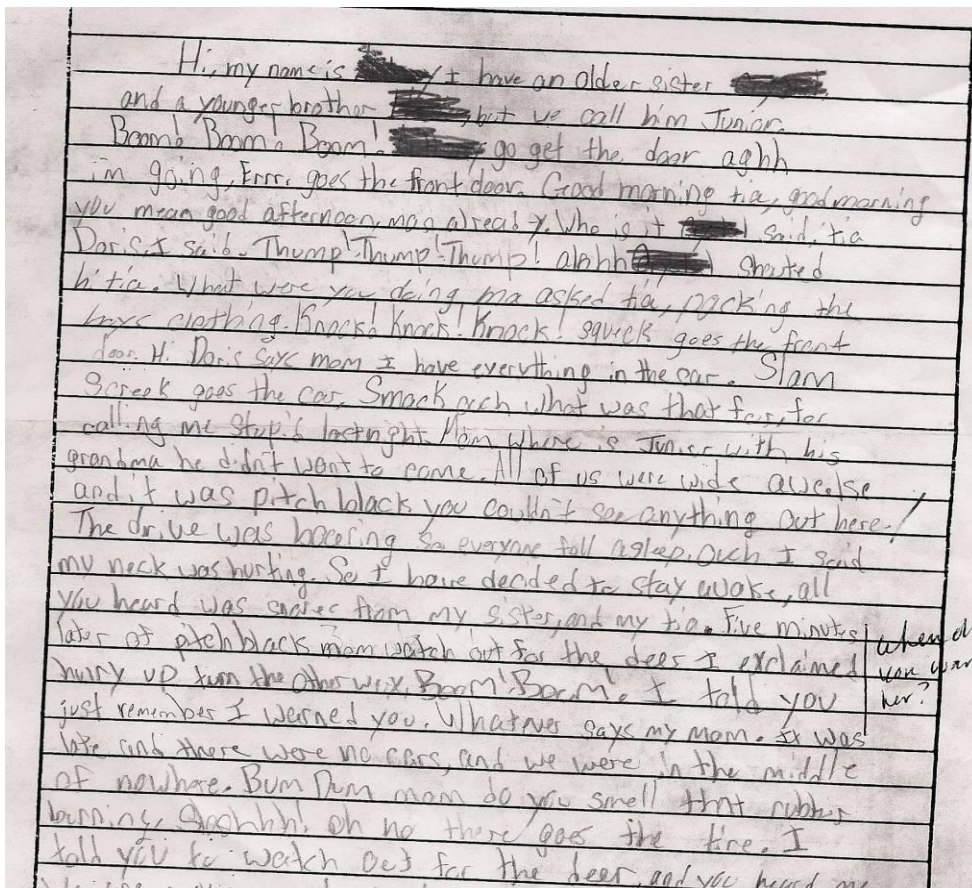 Hi, my name is I have an older sister
and a younger brother but we call him Junior.
Boom! Boom! Boom! go get the door aghh
i'm going, Errr, goes the front door. Good morning tia, good morning
you mean good afternoon, man already. Who is it said, tia
Doris, I said. Thump! Thump! Thump! ahhh shouted
hi tia. What were you doing ma asked tia, packing the
boys clothing. Knock! Knock! Knock! squeek goes the front
door. Hi Doris says mom I have everything in the car. Slam
Screek goes the car, Smack ouch what was that for, for
calling me stupid lastnight. Mom where is Junior with his
grandma he didn't want to come. All of us were wide
and it was pitch black you couldn't see anything out here.
The drive was so everyone fell asleep. Ouch I said
my neck was hurting. So I have decided to stay awake, all
you heard was snores from my sister, and my tia. Five minutes
later of pitch black mom watch out for the deer I exclaimed
hurry up turn the other way, Boom! Boom! I told you
just remember I warned you. Whatever says my mom. It was
late and there were no cars, and we were in the middle
of nowhere. Bum Dum mom do you smell that rubber
burning, oh no there goes the tire. I
told you to watch out for the deer, and you heard me
when did
you warn
her?